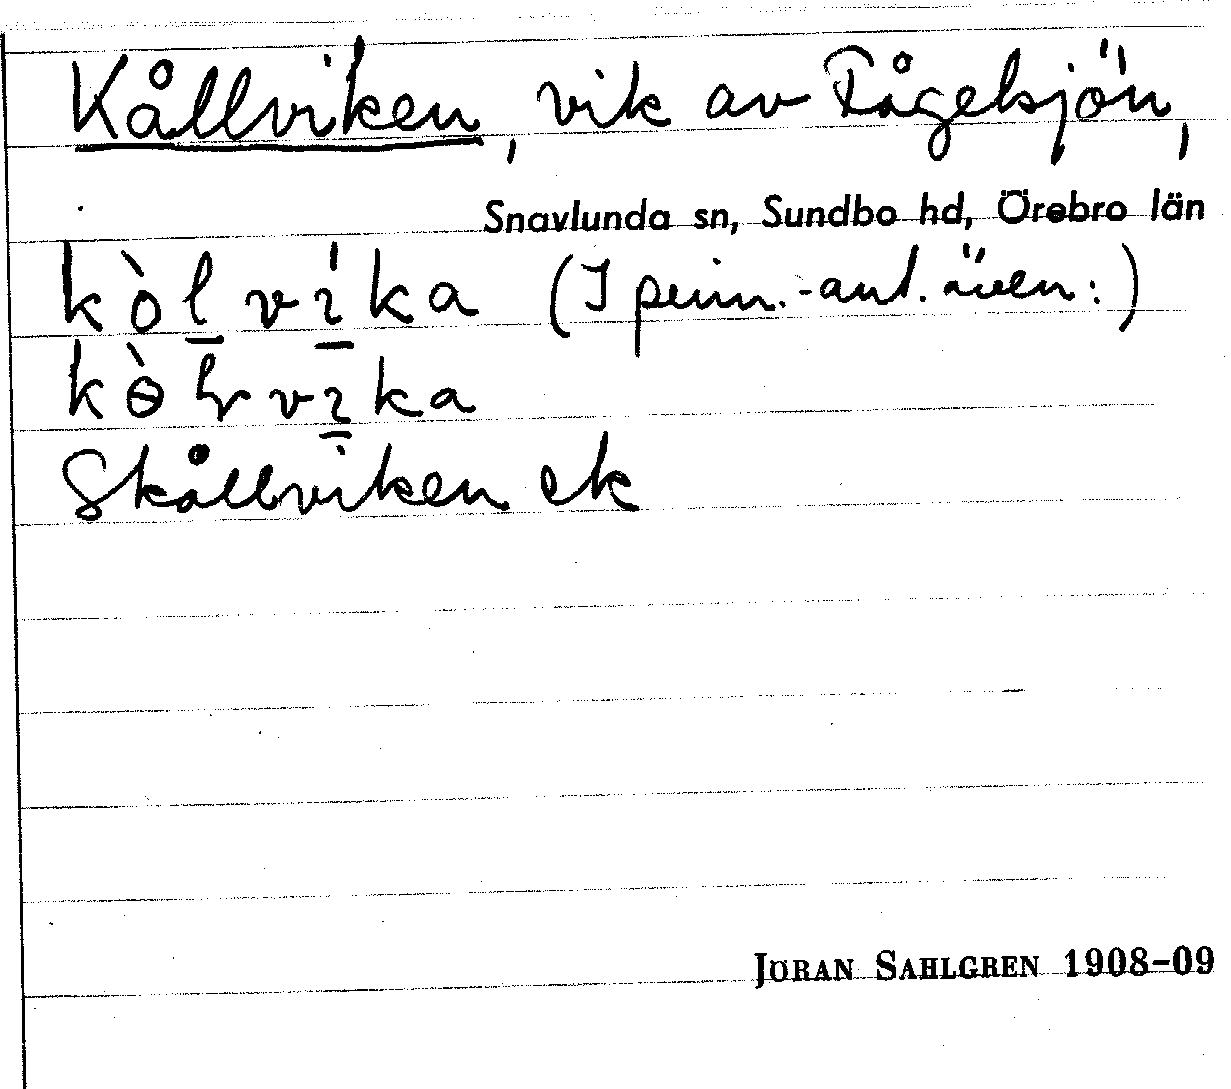 Kållviken, vik av Fågelsjön,
Snavlunda sn, Sundbo hd, Örebro län
kòl̲vı̲́ka (I penn.-ant. även:)
kèlrvı̲ka
Skållviken ek
JÖRAN SAHLGREN 1908–09